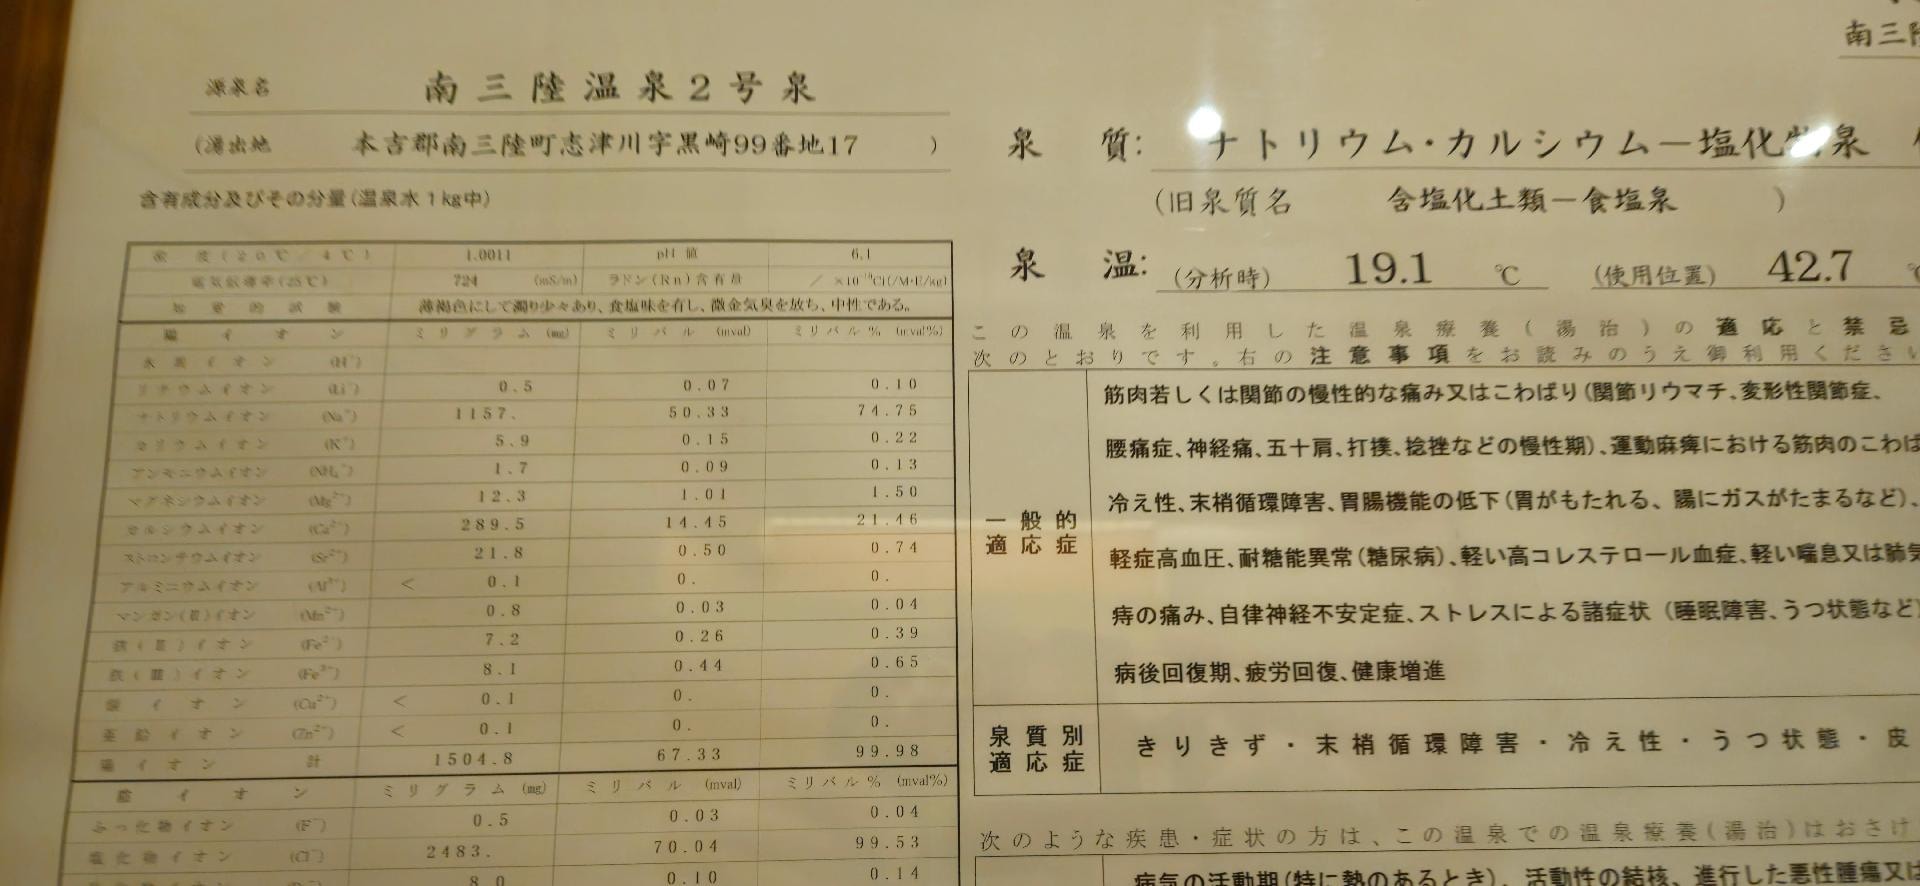 南三陸
源泉名 南三陸温泉2号泉
(湧出地 本吉郡南三陸町志津川字黒崎99番地17 )
含有成分及びその分量(温泉水1kg中)
密度(20℃/4℃) 1.0011 pH値 6.1
電気伝導率(25℃) 724 (mS/m) ラドン(Rn)含有量 / ×10⁻¹⁰Ci(/M・E/kg)
知覚的試験 薄褐色にして濁り少々あり、食塩味を有し、微金気臭を放ち、中性である。
陽イオン ミリグラム(mg) ミリバル(mval) ミリバル%(mval%)
水素イオン (H⁺)
リチウムイオン (Li⁺) 0.5 0.07 0.10
ナトリウムイオン (Na⁺) 1157. 50.33 74.75
カリウムイオン (K⁺) 5.9 0.15 0.22
アンモニウムイオン (NH₄⁺) 1.7 0.09 0.13
マグネシウムイオン (Mg²⁺) 12.3 1.01 1.50
カルシウムイオン (Ca²⁺) 289.5 14.45 21.46
ストロンチウムイオン (Sr²⁺) 21.8 0.50 0.74
アルミニウムイオン (Al³⁺) < 0.1 0. 0.
マンガン(Ⅱ)イオン (Mn²⁺) 0.8 0.03 0.04
鉄(Ⅱ)イオン (Fe²⁺) 7.2 0.26 0.39
鉄(Ⅲ)イオン (Fe³⁺) 8.1 0.44 0.65
銅イオン (Cu²⁺) < 0.1 0. 0.
亜鉛イオン (Zn²⁺) < 0.1 0. 0.
陽イオン 計 1504.8 67.33 99.98
陰イオン ミリグラム(mg) ミリバル(mval) ミリバル%(mval%)
ふっ化物イオン (F⁻) 0.5 0.03 0.04
塩化物イオン (Cl⁻) 2483. 70.04 99.53
8.0 0.10 0.14
泉質: ナトリウム・カルシウム－塩化物泉
(旧泉質名 含塩化土類－食塩泉 )
泉温: (分析時) 19.1 ℃ (使用位置) 42.7 ℃
この温泉を利用した温泉療養(湯治)の適応と禁忌
次のとおりです。右の注意事項をお読みのうえ御利用ください
一般的適応症
筋肉若しくは関節の慢性的な痛み又はこわばり(関節リウマチ、変形性関節症、
腰痛症、神経痛、五十肩、打撲、捻挫などの慢性期)、運動麻痺における筋肉のこわば
冷え性、末梢循環障害、胃腸機能の低下(胃がもたれる、腸にガスがたまるなど)、
軽症高血圧、耐糖能異常(糖尿病)、軽い高コレステロール血症、軽い喘息又は肺気
痔の痛み、自律神経不安定症、ストレスによる諸症状(睡眠障害、うつ状態など)
病後回復期、疲労回復、健康増進
泉質別適応症
きりきず・末梢循環障害・冷え性・うつ状態・皮
次のような疾患・症状の方は、この温泉での温泉療養(湯治)はおさけ
病気の活動期(特に熱のあるとき)、活動性の結核、進行した悪性腫瘍又は